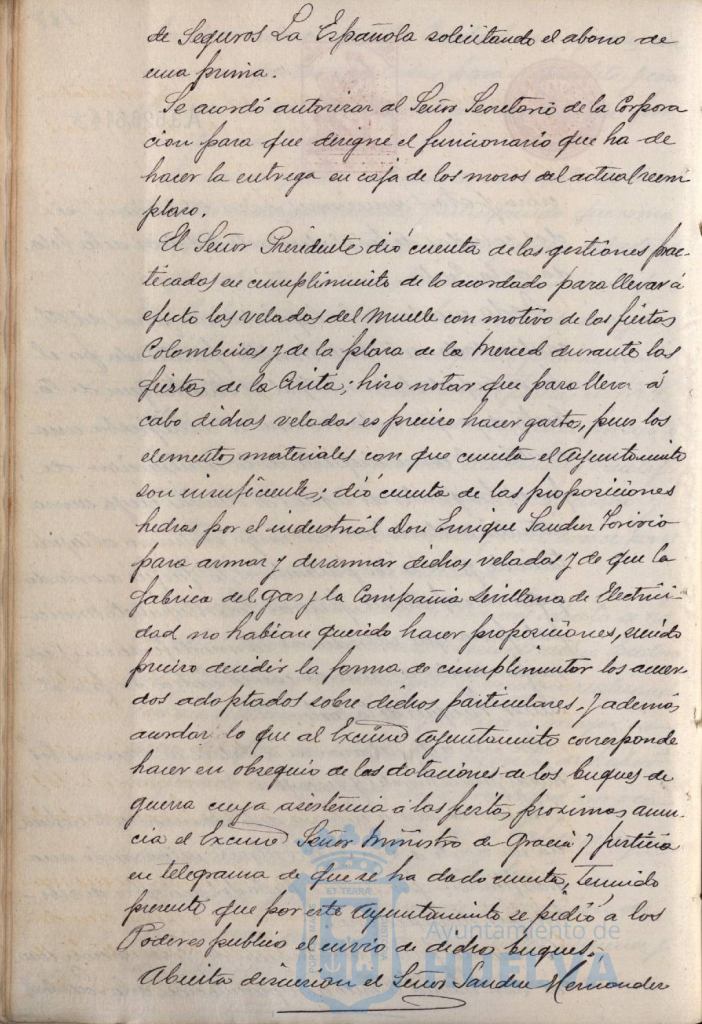 de Seguros La Española solicitando el abono de
una prima.
Se acordó autorizar al Señor Secretario de la Corpora
cion para que designe el funcionario que ha de
hacer la entrega en caja de los mozos del actual reem
plazo.
El Señor Presidente dió cuenta de las gestiones prac-
ticadas en cumplimiento de lo acordado para llevar á
efecto las veladas del Muelle con motivo de las fiestas
Colombinas y de la plaza de la Merced durante las
fiestas de la Cinta; hizo notar que para lleva á
cabo dichas veladas es preciso hacer gastos, pues los
elementos materiales con que cuenta el Ayuntamiento
son insuficientes; dió cuenta de las proposiciones
hechas por el industrial Don Enrique Sanchez Torivio
para armar y desarmar dichas veladas y de que la
fabrica del gas y la Compañia Sevillana de Electrici-
dad no habian querido hacer proposiciones, siendo
preciso decidir la forma de cumplimentar los acuer
dos adoptados sobre dichos particulares, y además
acordar lo que al Excmo Ayuntamiento corresponde
hacer en obsequio de las dotaciones de los buques de
guerra cuya asistencia á las fiestas proximas anun
cia el Excmo Señor Ministro de Gracia y Justicia
en telegrama de que se ha dado cuenta, teniendo
presente que por este Ayuntamiento se pidió á los
Poderes publicos el envio de dichos buques.
Abierta discusion el Señor Sanchez Hernandez
Ayuntamiento de
HUELVA